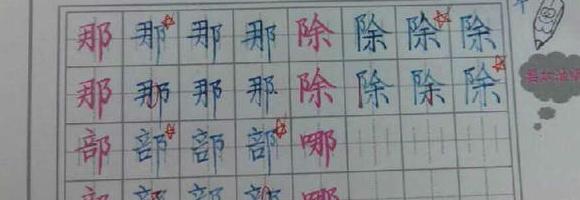 那那那那除除除除
那那那那除除除除
部部部部哪
部部部部哪